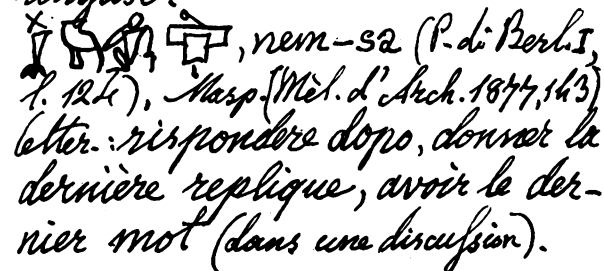 , nem-sa (P. di Berl. I,
l. 124), Masp. (Mèl. d'Arch. 1877, 143)
letter.: rispondere dopo, donner la
dernière replique, avoir le der-
nier mot (dans une discussion).